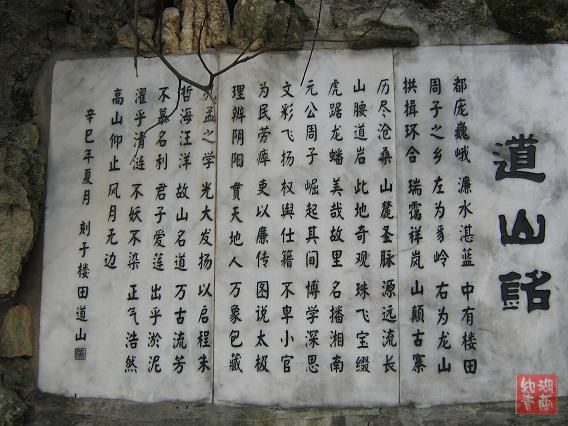 道山铭
都庞巍峨 濂水湛蓝 中有楼田
周子之乡 左为豸岭 右为龙山
拱揖环合 瑞霭祥岚 山颠古寨
历尽沧桑 山麓圣脉 源远流长
山腰道岩 此地奇观 珠飞宝缀
虎踞龙蟠 美哉故里 名播湘南
元公周子 崛起其间 博学深思
文彩飞扬 权舆仕籍 不卑小官
为民劳瘁 吏以廉传 图说太极
理辨阴阳 貫天地人 万象包藏
孟之学 光大发扬 以启程朱
哲海汪洋 故山名道 万古流芳
不慕名利 君子爱莲 出乎淤泥
濯乎清涟 不妖不染 正气浩然
高山仰止 风月无边
辛巳年夏月 刻于楼田道山
湖南